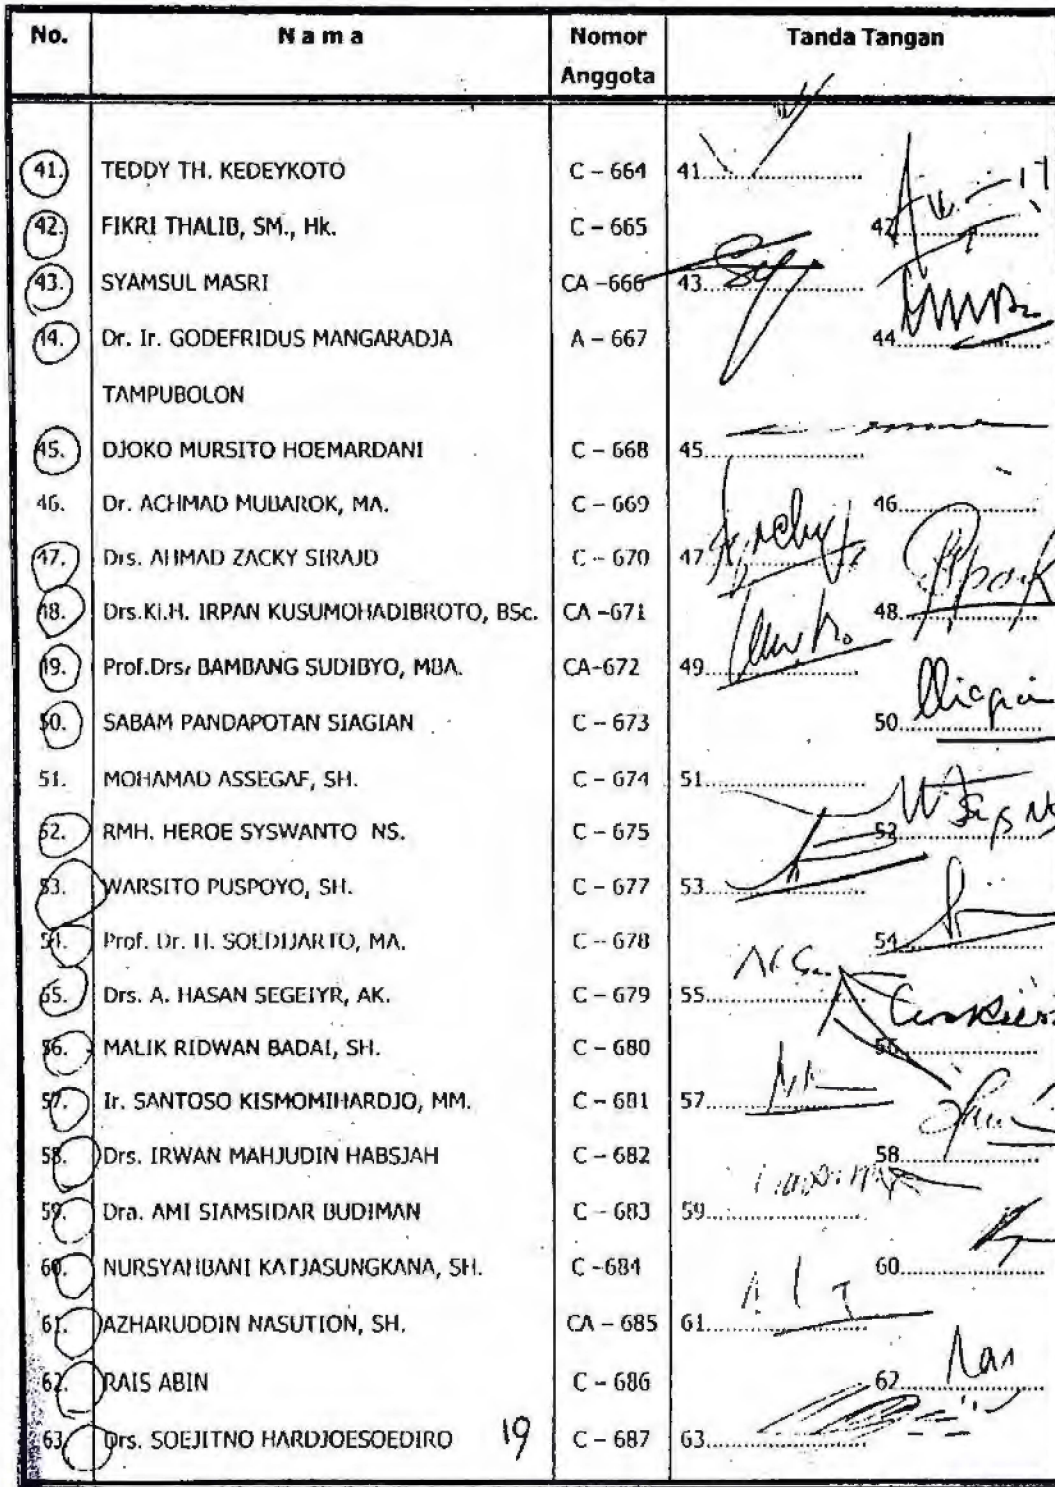 No. Nama Nomor Anggota Tanda Tangan
41. TEDDY TH. KEDEYKOTO C – 664 41
42. FIKRI THALIB, SM., Hk. C – 665 42
43. SYAMSUL MASRI CA –666 43
44. Dr. Ir. GODEFRIDUS MANGARADJA A – 667 44
TAMPUBOLON
45. DJOKO MURSITO HOEMARDANI C – 668 45
46. Dr. ACHMAD MUBAROK, MA. C – 669 46
47. Drs. AHMAD ZACKY SIRAJD C – 670 47
48. Drs.Ki.H. IRPAN KUSUMOHADIBROTO, BSc. CA –671 48
49. Prof.Drs. BAMBANG SUDIBYO, MBA. CA-672 49
50. SABAM PANDAPOTAN SIAGIAN C – 673 50
51. MOHAMAD ASSEGAF, SH. C – 674 51
52. RMH. HEROE SYSWANTO NS. C – 675 52
53. WARSITO PUSPOYO, SH. C – 677 53
54. Prof. Dr. H. SOEDIJARTO, MA. C – 678 54
55. Drs. A. HASAN SEGEIYR, AK. C – 679 55
56. MALIK RIDWAN BADAI, SH. C – 680 56
57. Ir. SANTOSO KISMOMIHARDJO, MM. C – 681 57
58. Drs. IRWAN MAHJUDIN HABSJAH C – 682 58
59. Dra. AMI SIAMSIDAR BUDIMAN C – 683 59
60. NURSYAHBANI KATJASUNGKANA, SH. C –684 60
61. AZHARUDDIN NASUTION, SH. CA – 685 61
62. RAIS ABIN C – 686 62
63. Drs. SOEJITNO HARDJOESOEDIRO 19 C – 687 63